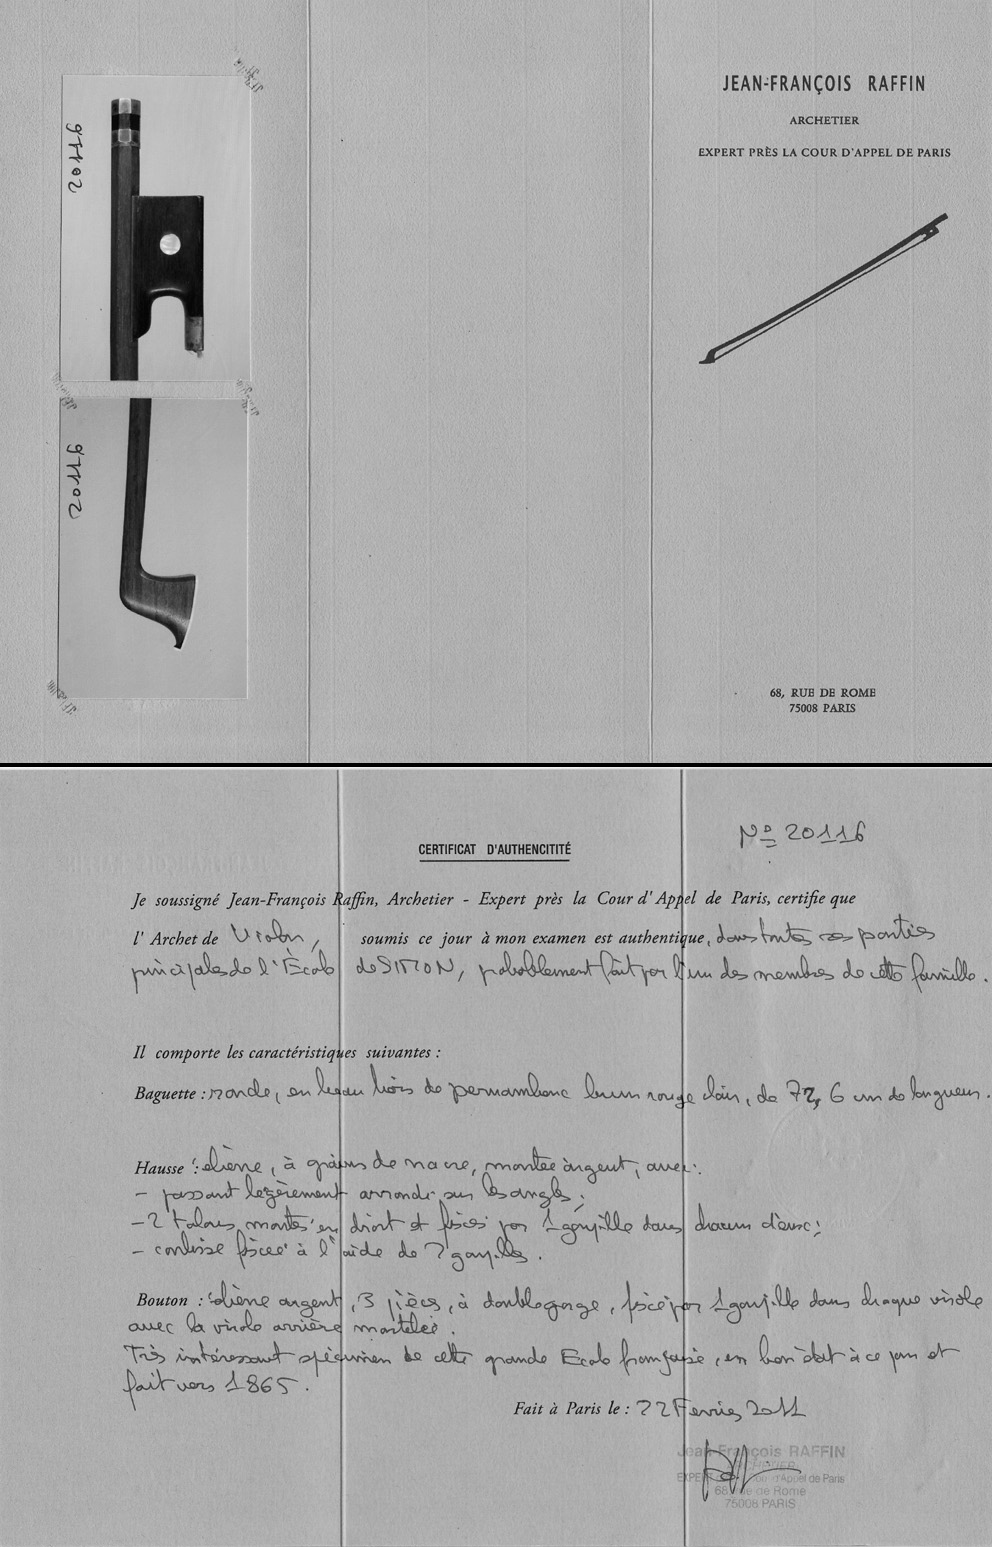 JEAN-FRANÇOIS RAFFIN
ARCHETIER
EXPERT PRÈS LA COUR D'APPEL DE PARIS
68, RUE DE ROME
75008 PARIS
CERTIFICAT D'AUTHENCITITÉ
Nº 20116
Je soussigné Jean-François Raffin, Archetier - Expert près la Cour d'Appel de Paris, certifie que
l'Archet de Violon, soumis ce jour à mon examen est authentique, dans toutes ses parties
principales de l'École de SIMON, probablement fait par l'un des membres de cette famille.
Il comporte les caractéristiques suivantes :
Baguette : ronde, en beau bois de pernambouc brun rouge clair, de 72,6 cm de longueur.
Hausse : ébène, à grains de nacre, montée argent, avec :
- passant légèrement arrondi sur les angles ;
- 2 talons, montés en droit et fixés par 1 goupille dans chacun d'eux ;
- coulisse fixée à l'aide de 2 goupilles.
Bouton : ébène argent, 3 pièces, à double gorge, fixé par 1 goupille dans chaque virole
avec la virole arrière martelée.
Très intéressant spécimen de cette grande Ecole française, en bon état à ce jour et
fait vers 1865.
Fait à Paris le : 22 Fevrier 2011
Jean François RAFFIN
ARCHETIER
68 Rue de Rome
75008 PARIS